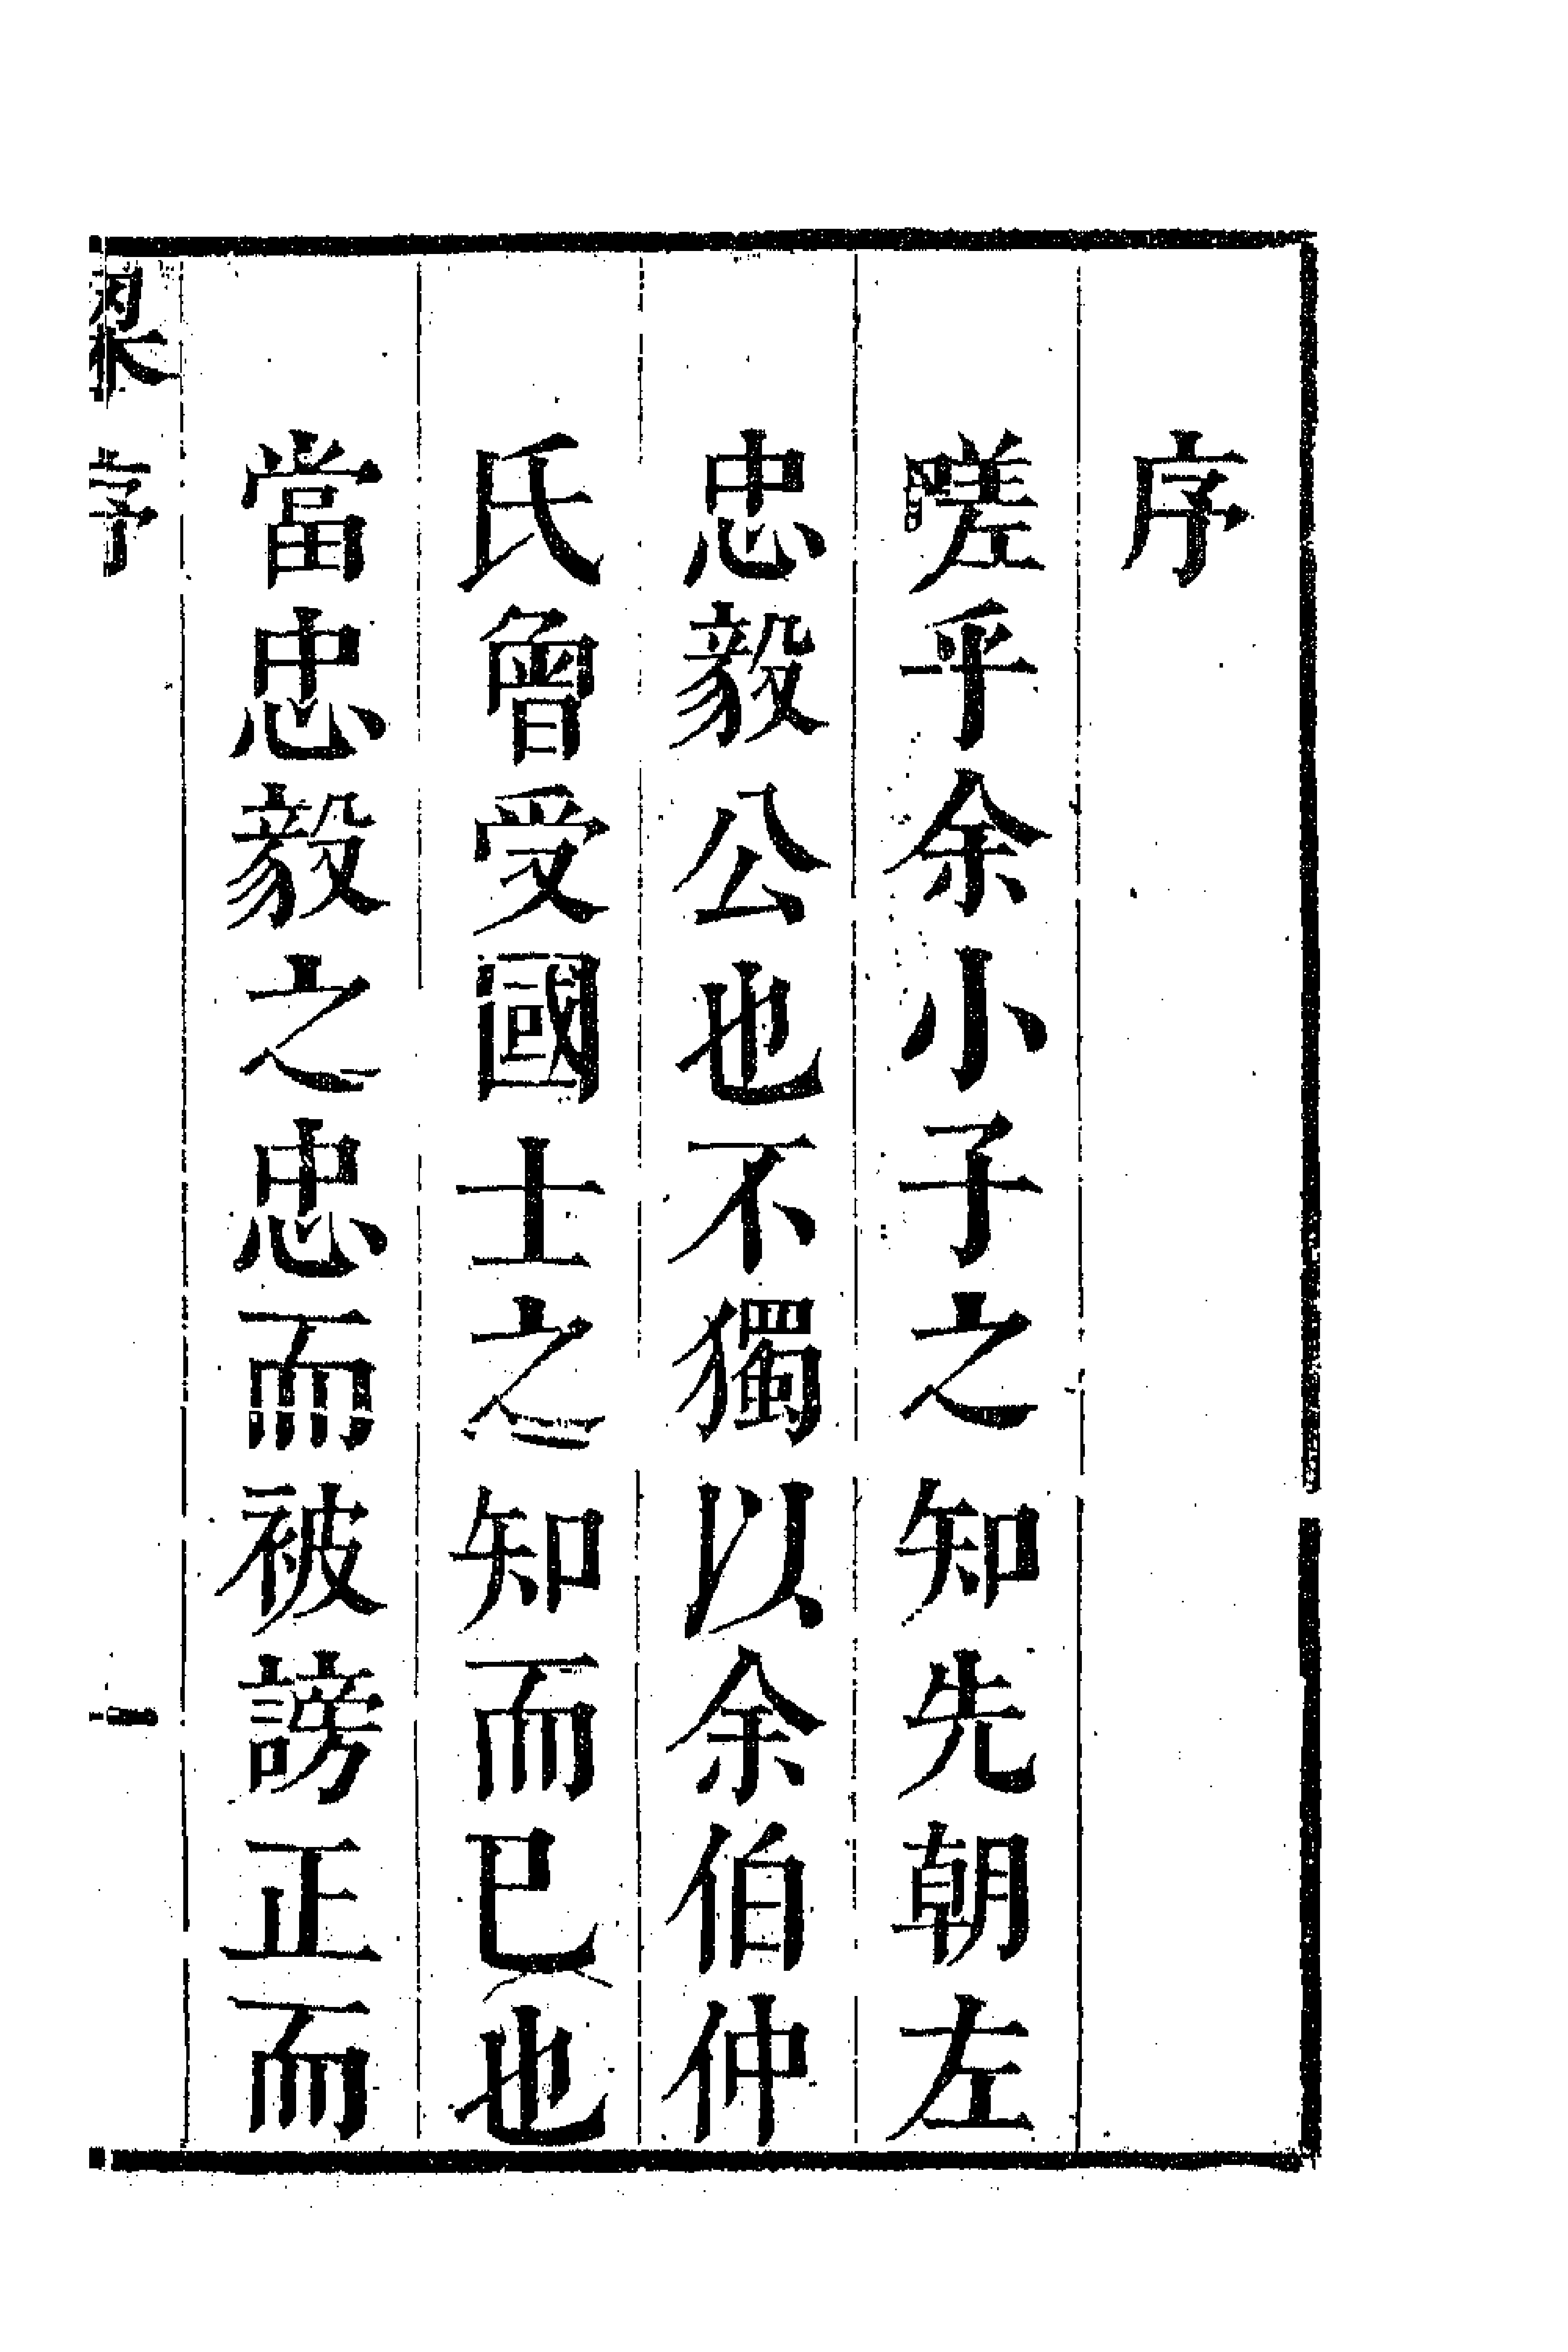 序
嗟乎余小子之知先朝左
忠毅公也不獨以余伯仲
氏曾受國士之知而已也
當忠毅之忠而被謗正而
序
一